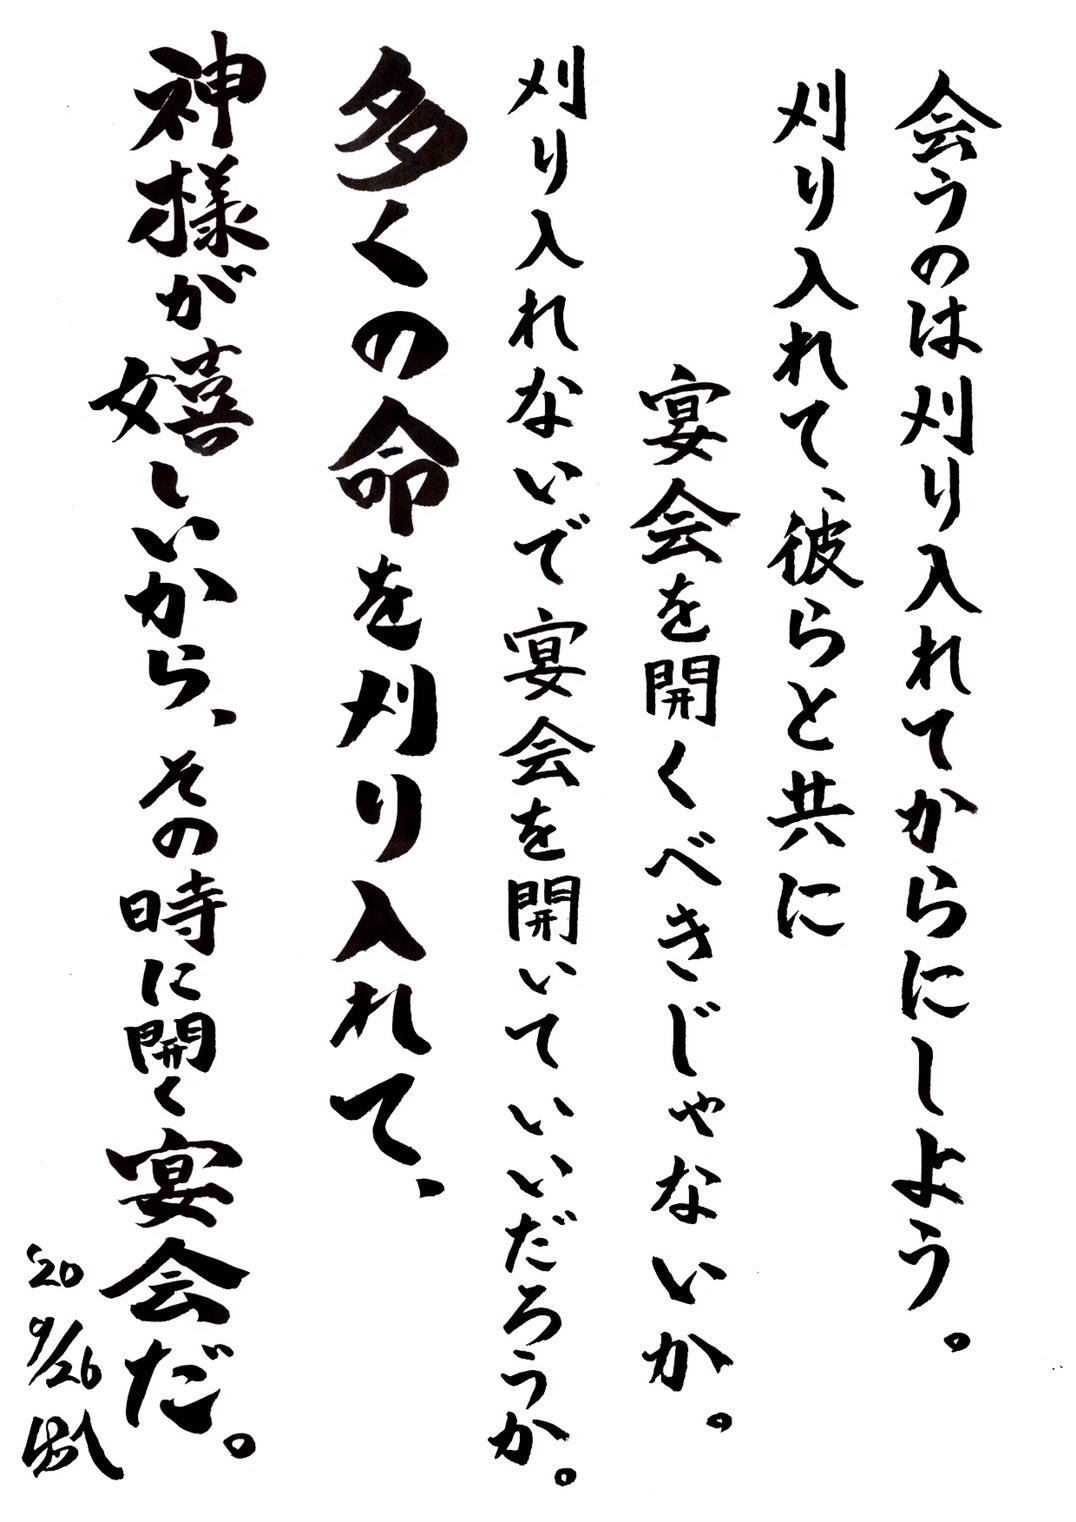 会うのは刈り入れてからにしよう。
刈り入れて、彼らと共に
宴会を開くべきじゃないか。
刈り入れないで宴会を開いていいだろうか。
多くの命を刈り入れて、
神様が嬉しいから、その時に開く宴会だ。
'20
9/26